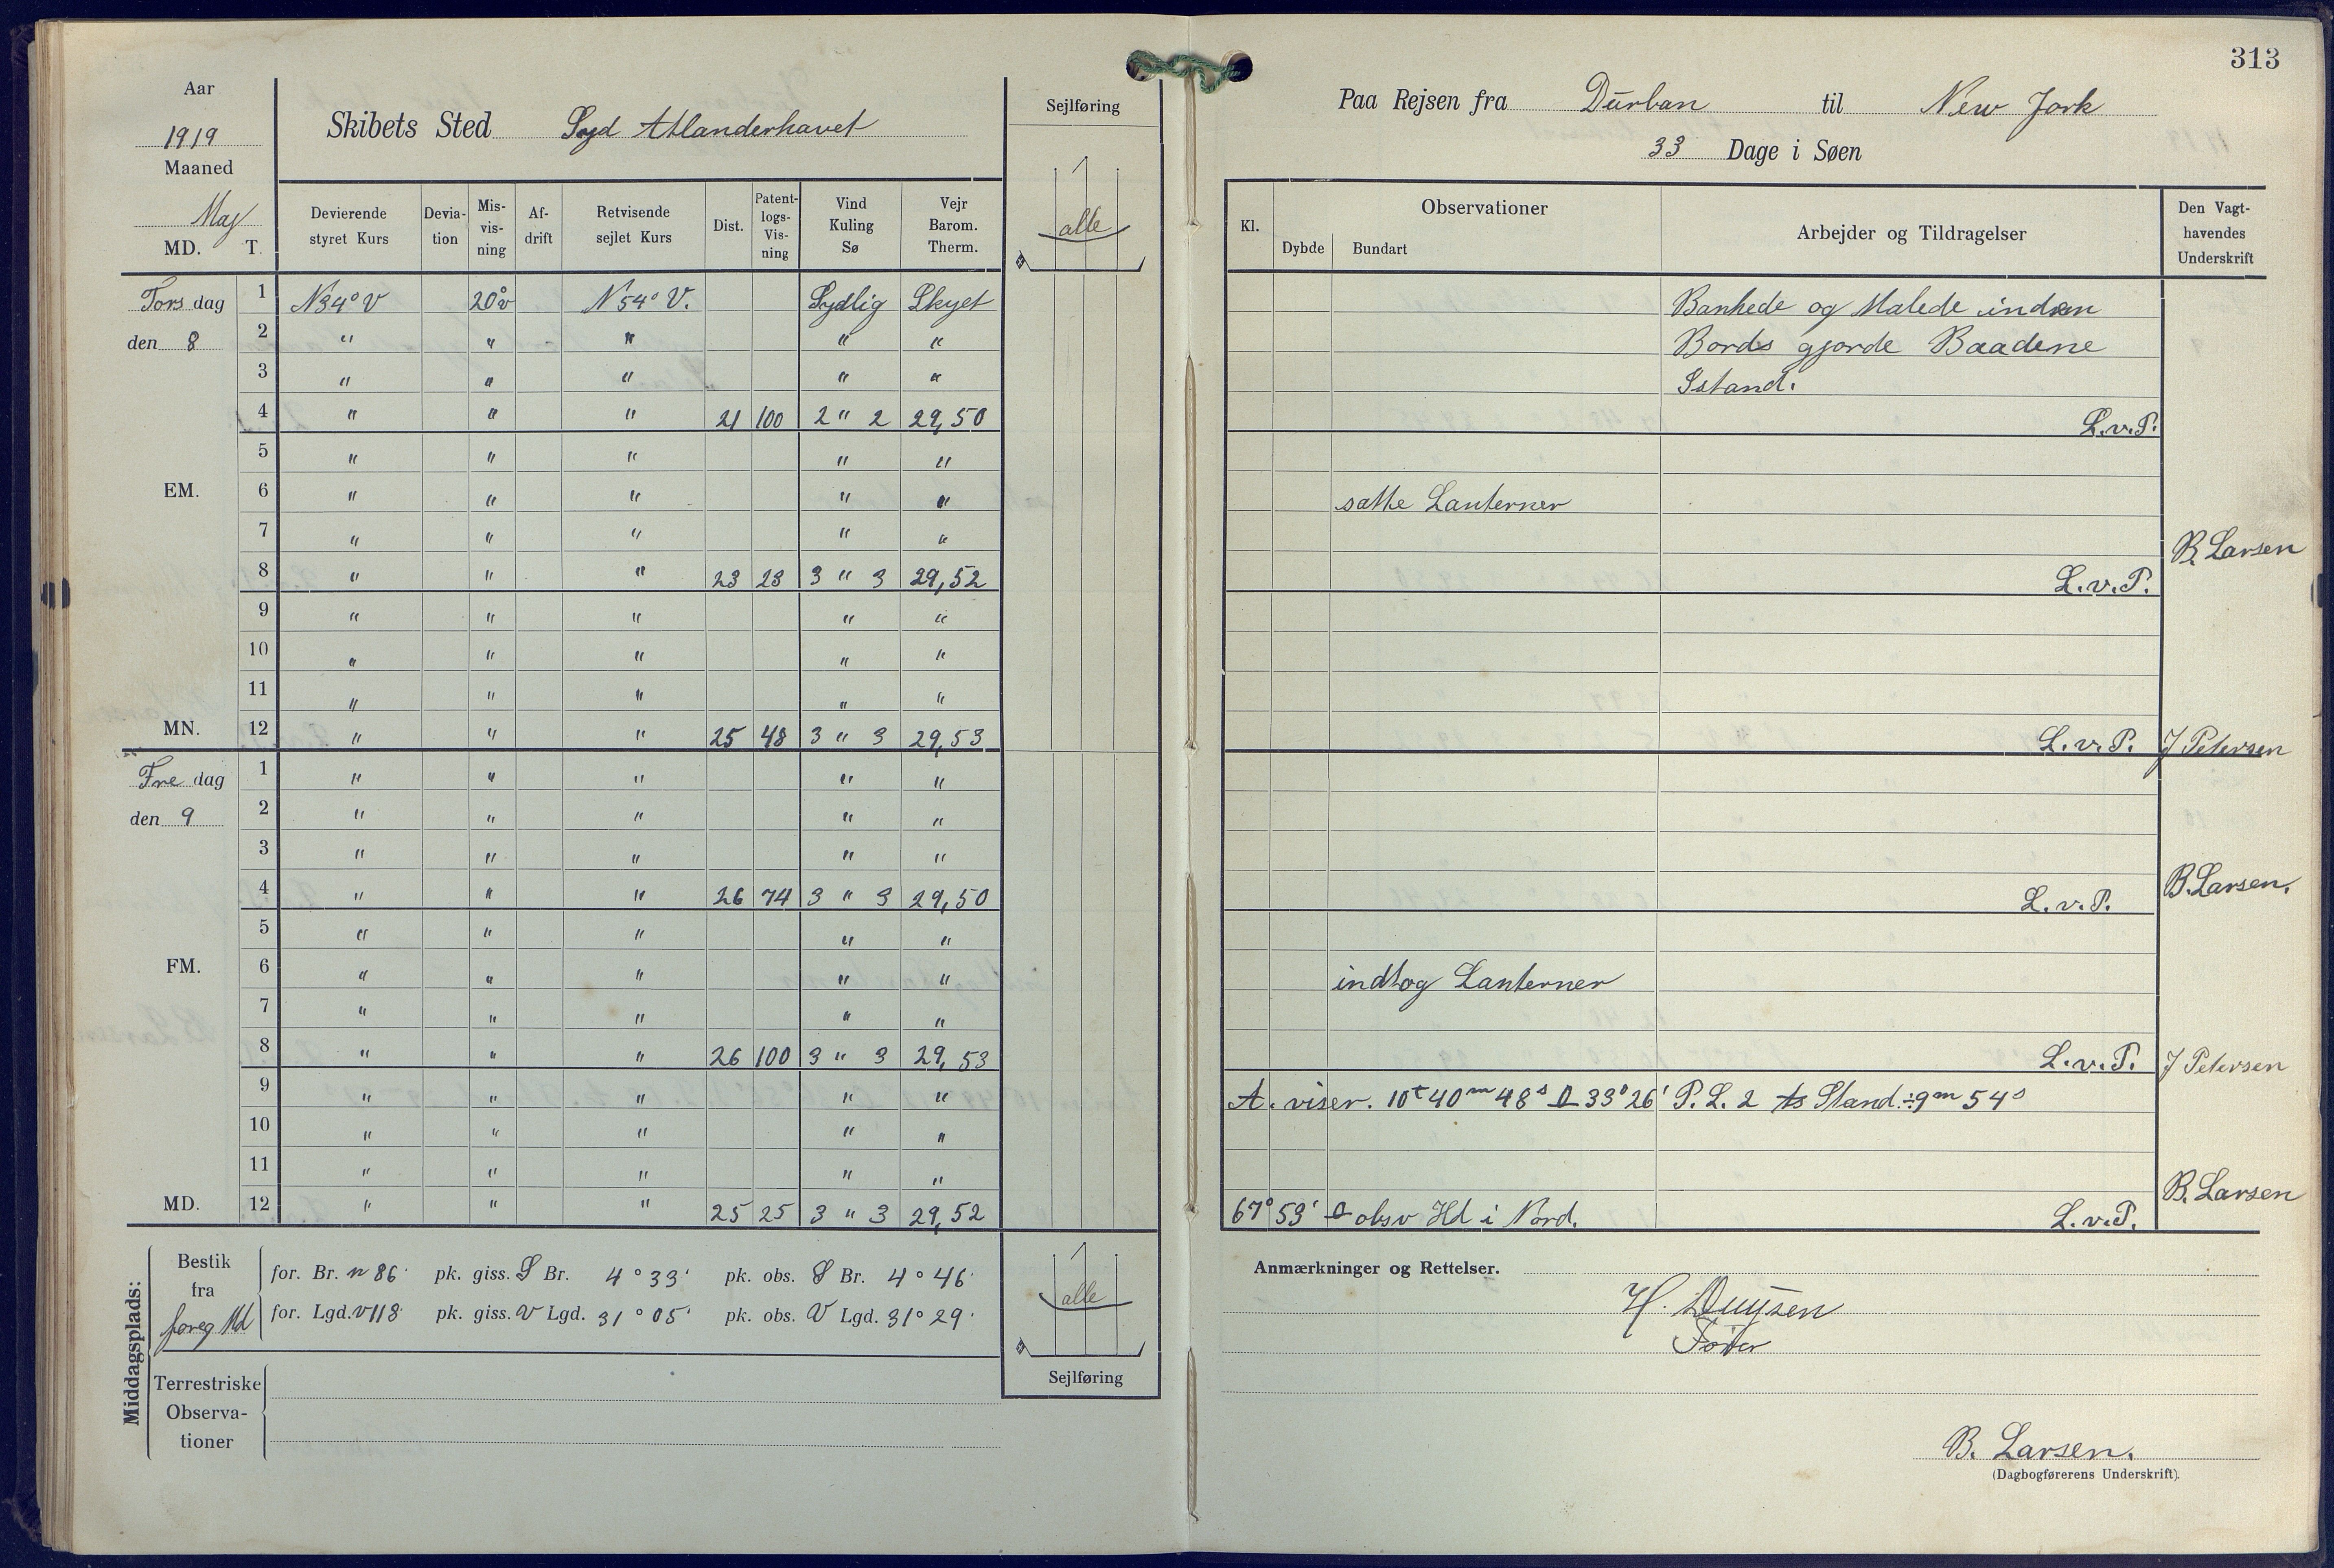 313
Aar
1919
Maaned
Maj
MD. T.
Skibets Sted Syd Atlanderhavet
Sejlføring
alle
Paa Rejsen fra Durban til New York
33 Dage i Søen
Devierende styret Kurs
Devia-tion
Mis-vis-ning
Af-drift
Retvisende sejlet Kurs
Dist.
Patent-logs-Vis-ning
Vind Kuling Sø
Vejr Barom. Therm.
Kl.
Observationer
Dybde Bundart
Arbejder og Tildragelser
Den Vagt-havendes Underskrift
Tors dag 1 N34°V 20°v N54°V. Sydlig Skyet Bankede og Malede inden
den 8 2 " " " " " Bords gjorde Baadene
3 " " " " " Istand.
4 " " " 21 100 2 " 2 29,50 L.v.P.
5 " " " " "
EM. 6 " " " " " satte Lanterner
7 " " " " "
8 " " " 23 23 3 " 3 29,52 L.v.P. B. Larsen
9 " " " " "
10 " " " " "
11 " " " " "
MN. 12 " " " 25 48 3 " 3 29,53 L.v.P. J Petersen
Fre dag 1 " " " " "
den 9 2 " " " " "
3 " " " " "
4 " " " 26 74 3 " 3 29,50 L.v.P. B. Larsen.
5 " " " " "
FM. 6 " " " " " indtog Lanterner
7 " " " " "
8 " " " 26 100 3 " 3 29,53 L.v.P. J Petersen
9 " " " " " A. viser. 10t 40m 48s 33°26' P.L. 2 Stand. ÷9m 54s
10 " " " " "
11 " " " " "
MD. 12 " " " 25 25 3 " 3 29,52 67°53' obsv Hd i Nord. L.v.P. B. Larsen
Middagsplads:
Bestik fra foreg Md
for. Br. n 86' pk. giss. S Br. 4°33' pk. obs. S Br. 4°46'
for. Lgd. v 118' pk. giss. V Lgd. 31°05' pk. obs. V Lgd. 31°29'
Terrestriske Observa-tioner
alle
Sejlføring
Anmærkninger og Rettelser.
H. Duysen
Fører
B. Larsen.
(Dagbogførerens Underskrift).